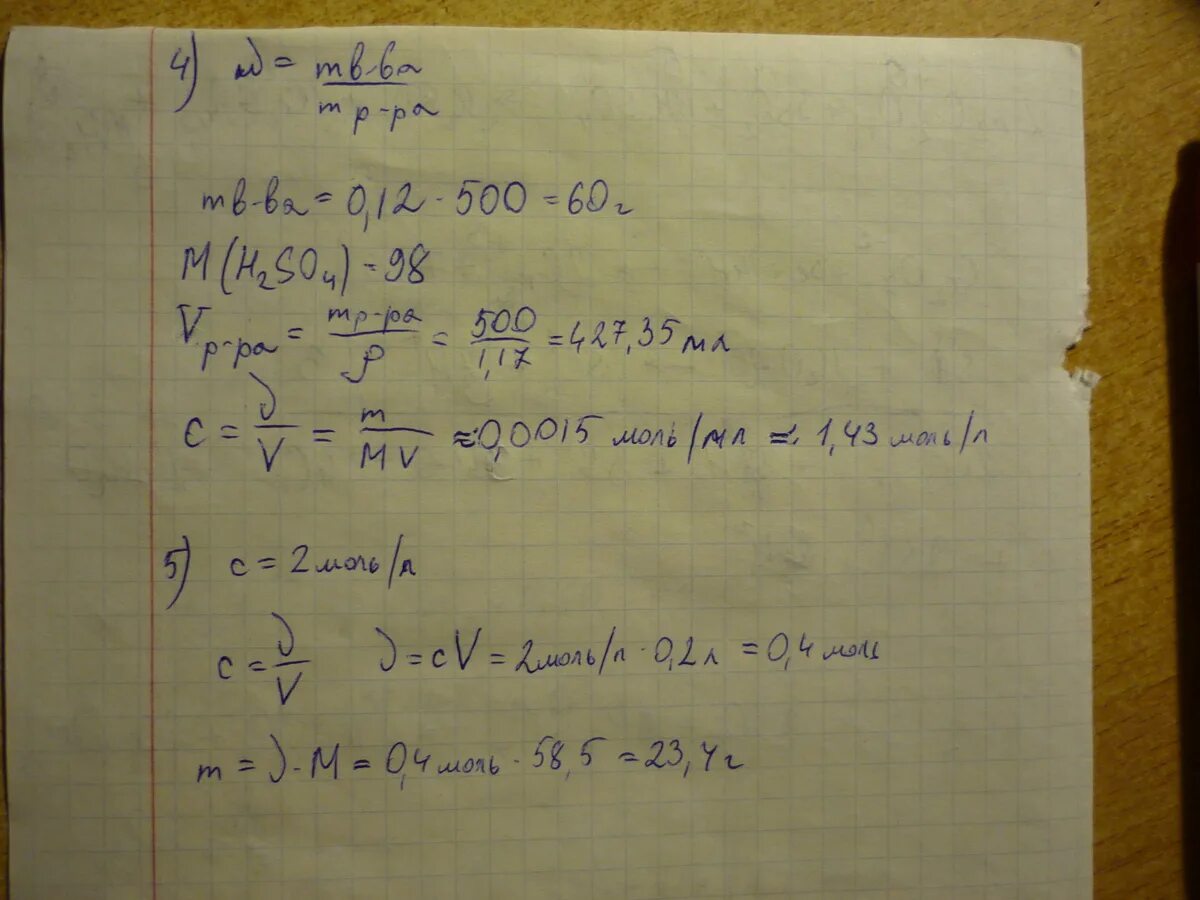 4) ω = m в-ва / m р-ра
m в-ва = 0,12 · 500 = 60 г
M (H₂SO₄) = 98
V р-ра = m р-ра / ρ = 500 / 1,17 = 427,35 мл
c = ν / V = m / M V ≈ 0,0015 моль/мл ≈ 1,43 моль/л
5) c = 2 моль/л
c = ν / V ν = cV = 2 моль/л · 0,2 л = 0,4 моль
m = ν · M = 0,4 моль · 58,5 = 23,4 г